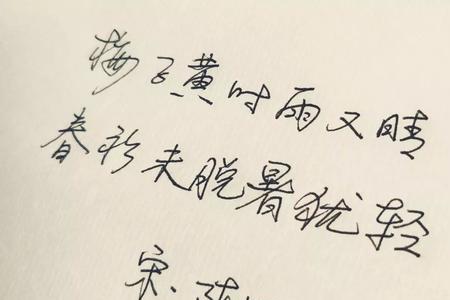 梅子黄时雨又晴
春衫未脱暑犹轻
宋·